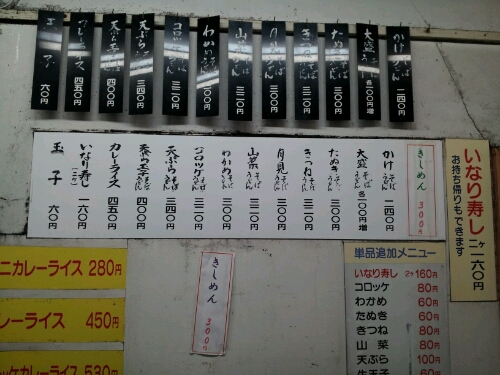 かけ そば うどん 二四〇円
大盛 そば うどん 各一〇〇円増
たぬき そば うどん 三〇〇円
きつね そば うどん 三〇〇円
月見 そば うどん 三〇〇円
山菜 そば うどん 三二〇円
わかめ そば うどん 三〇〇円
コロッケ そば うどん 三二〇円
天ぷら そば うどん 三四〇円
天ぷら玉子 そば うどん 四〇〇円
カレーライス 四五〇円
玉子 六〇円
きしめん 300円
かけ そば うどん 二四〇円
大盛 そば うどん 各一〇〇円増
たぬき そば うどん 三〇〇円
きつね そば うどん 三〇〇円
月見 そば うどん 三〇〇円
山菜 そば うどん 三二〇円
わかめ そば うどん 三〇〇円
コロッケ そば うどん 三二〇円
天ぷら そば うどん 三四〇円
天ぷら玉子 そば うどん 四〇〇円
カレーライス 四五〇円
いなり寿し (二ケ) 一六〇円
玉子 六〇円
いなり寿し 二ケ 一六〇円
お持ち帰りもできます
ニカレーライス 280円
レーライス 450円
ッケカレーライス 530円
きしめん 300円
単品追加メニュー
いなり寿し 2ヶ160円
コロッケ 80円
わかめ 60円
たぬき 60円
きつね 80円
山菜 80円
天ぷら 100円
生玉子 60円